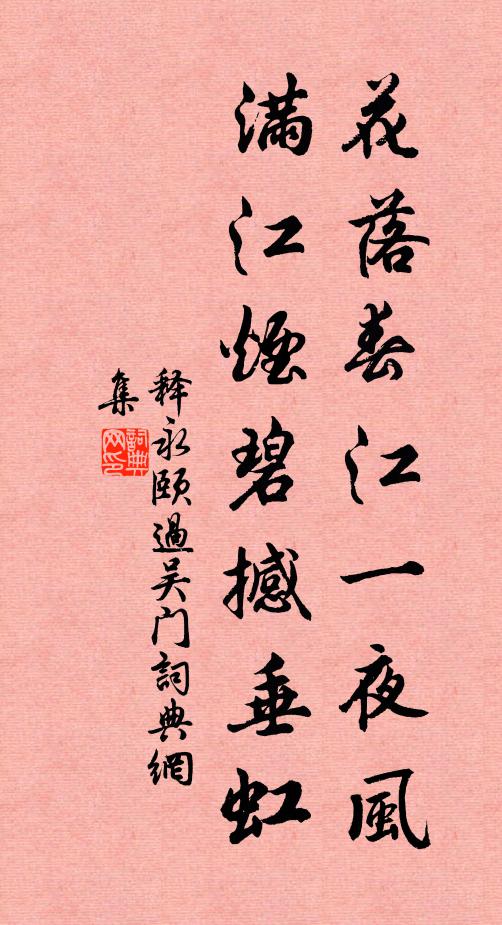 花落春江一夜風
滿江煙碧撼垂虹
释永颐過吴门詞典網
集
詞典网印